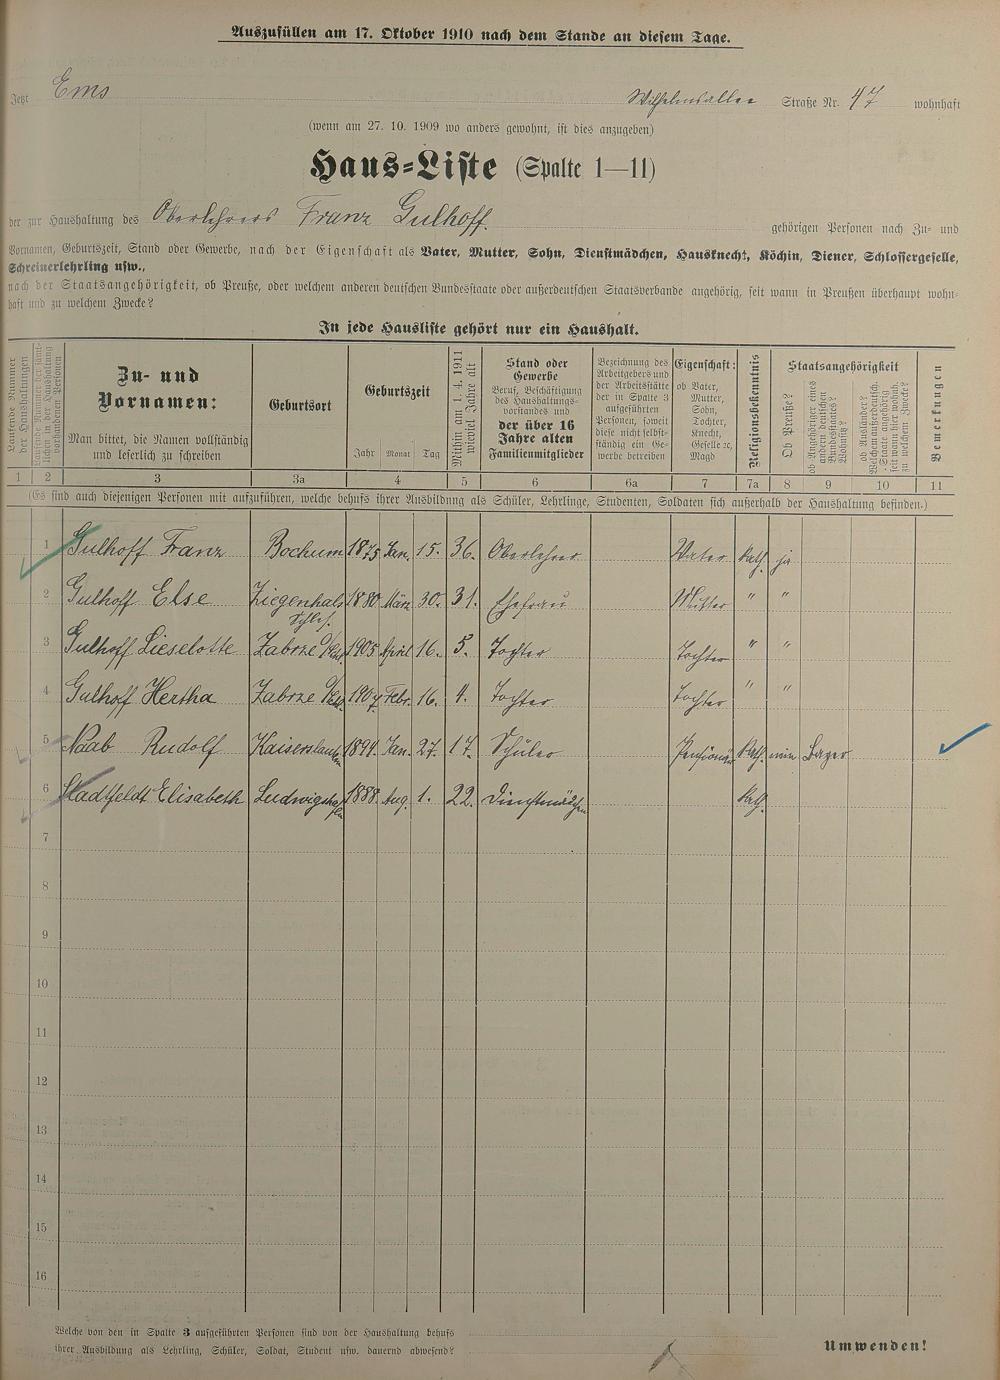 Auszufüllen am 17. Oktober 1910 nach dem Stande an diesem Tage.
Jetzt Ems Wilhelmsallee Straße Nr. 47 wohnhaft
(wenn am 27. 10. 1909 wo anders gewohnt, ist dies anzugeben)
Haus-Liste (Spalte 1—11)
der zur Haushaltung des Oberlehrers Franz Gulhoff. gehörigen Personen nach Zu- und
Vornamen, Geburtszeit, Stand oder Gewerbe, nach der Eigenschaft als Vater, Mutter, Sohn, Dienstmädchen, Hausknecht, Köchin, Diener, Schlossergeselle,
Schreinerlehrling usw.,
nach der Staatsangehörigkeit, ob Preuße, oder welchem anderen deutschen Bundesstaate oder außerdeutschen Staatsverbande angehörig, seit wann in Preußen überhaupt wohn-
haft und zu welchem Zwecke?
In jede Hausliste gehört nur ein Haushalt.
Laufende Nummer der Haushaltungen
Laufende Nummer der sämt-
lichen in der Haushaltung
vorhandenen Personen
Zu- und
Vornamen:
Man bittet, die Namen vollständig
und leserlich zu schreiben
Geburtsort
Geburtszeit
Jahr Monat Tag
Mithin am 1. 4. 1911
wieviel Jahre alt
Stand oder
Gewerbe
Beruf, Beschäftigung
des Haushaltungs-
vorstandes und
der über 16
Jahre alten
Familienmitglieder
Bezeichnung des
Arbeitgebers und
der Arbeitsstätte
der in Spalte 3
aufgeführten
Personen, soweit
diese nicht selbst-
ständig ein Ge-
werbe betreiben
Eigenschaft:
ob Vater,
Mutter,
Sohn,
Tochter,
Knecht,
Geselle ꝛc,
Magd
Religionsbekenntnis
Staatsangehörigkeit
Ob Preuße?
ob Angehöriger eines
andern deutschen
Bundesstaates?
ob Ausländer?
Welchem außerdeutsch.
Staate angehörig
seit wann hier wohnh.
zu welchem Zwecke?
Bemerkungen
1 2 3 3a 4 5 6 6a 7 7a 8 9 10 11
(Es sind auch diejenigen Personen mit aufzuführen, welche behufs ihrer Ausbildung als Schüler, Lehrlinge, Studenten, Soldaten sich außerhalb der Haushaltung befinden.)
1 Gulhoff Franz Bochum 1875 Jan. 15. 36. Oberlehrer Vater kath. ja
2 Gulhoff Else Ziegenhals Schles. 1880 März 30. 31. Ehefrau Mutter " "
3 Gulhoff Lieselotte Zabrze 1905 April 16. 5. Tochter Tochter " "
4 Gulhoff Hertha Zabrze 1907 Febr. 16. 4. Tochter Tochter " "
5 Naab Rudolf Kaiserslautern 1894 Jan. 27. 17. Schüler Pensionär kath. nein Bayer
6 Stadtfeldt Elisabeth Ludwigshafen 1888 Aug. 1. 22. Dienstmädchen kath.
7
8
9
10
11
12
13
14
15
16
Welche von den in Spalte 3 aufgeführten Personen sind von der Haushaltung behufs
ihrer Ausbildung als Lehrling, Schüler, Soldat, Student usw. dauernd abwesend?
Umwenden!